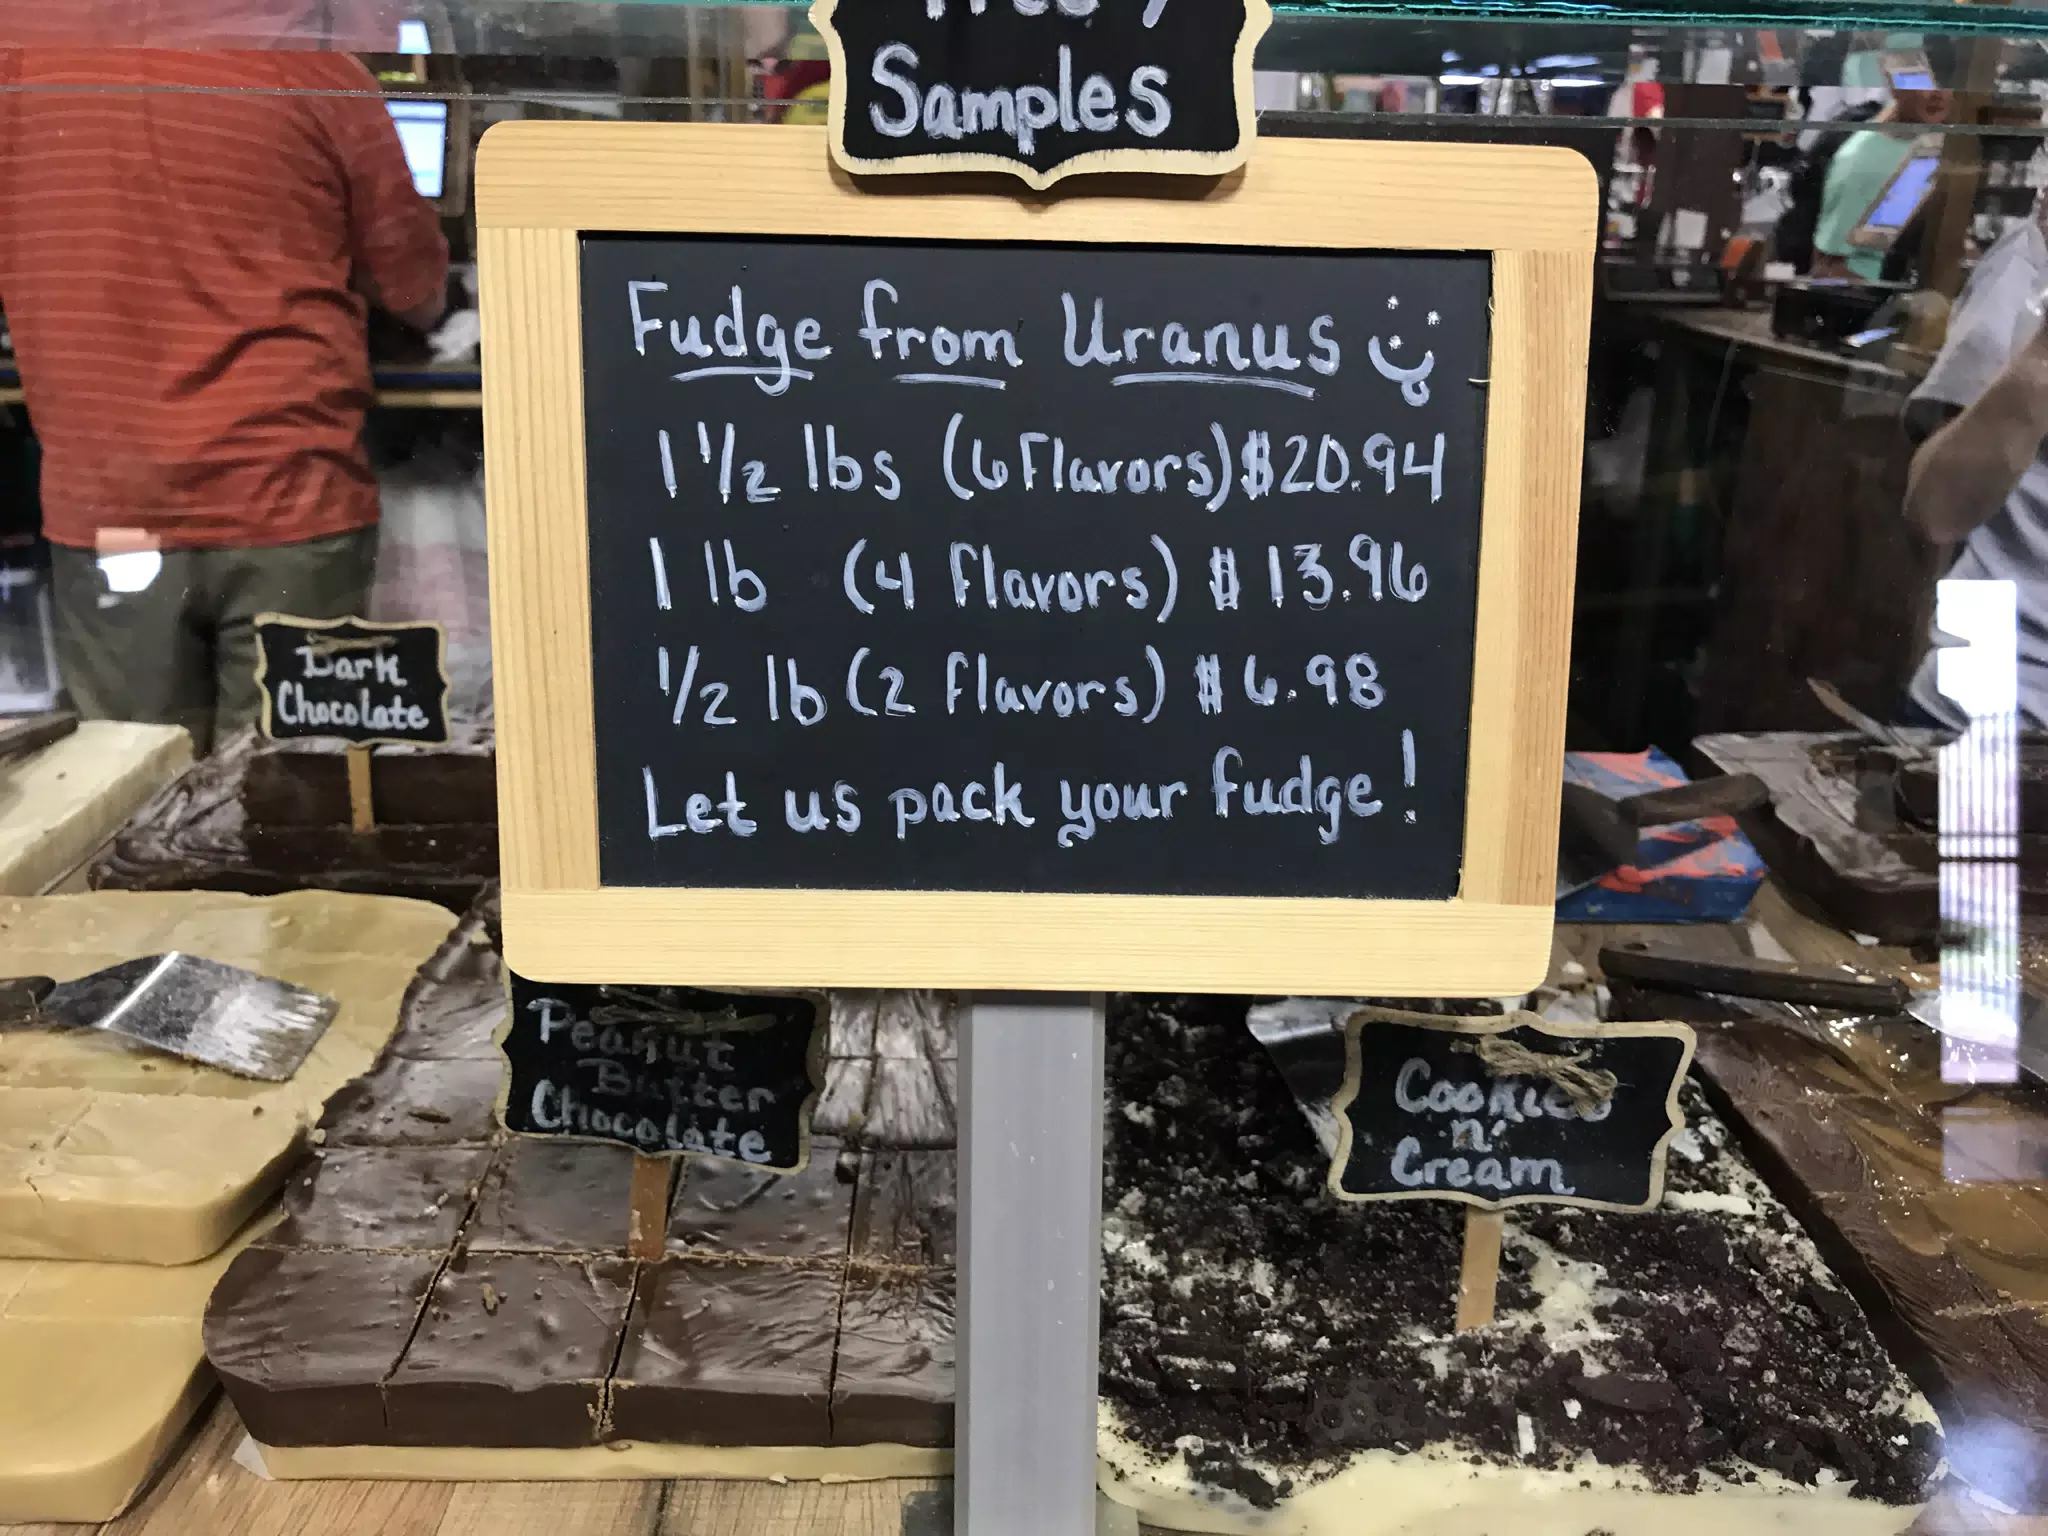 Free
Samples
Fudge from Uranus
1 1/2 lbs (6 Flavors) $20.94
1 lb (4 flavors) $13.96
1/2 lb (2 flavors) $6.98
Let us pack your fudge!
Dark
Chocolate
Peanut
Butter
Chocolate
Cookies
n'
Cream